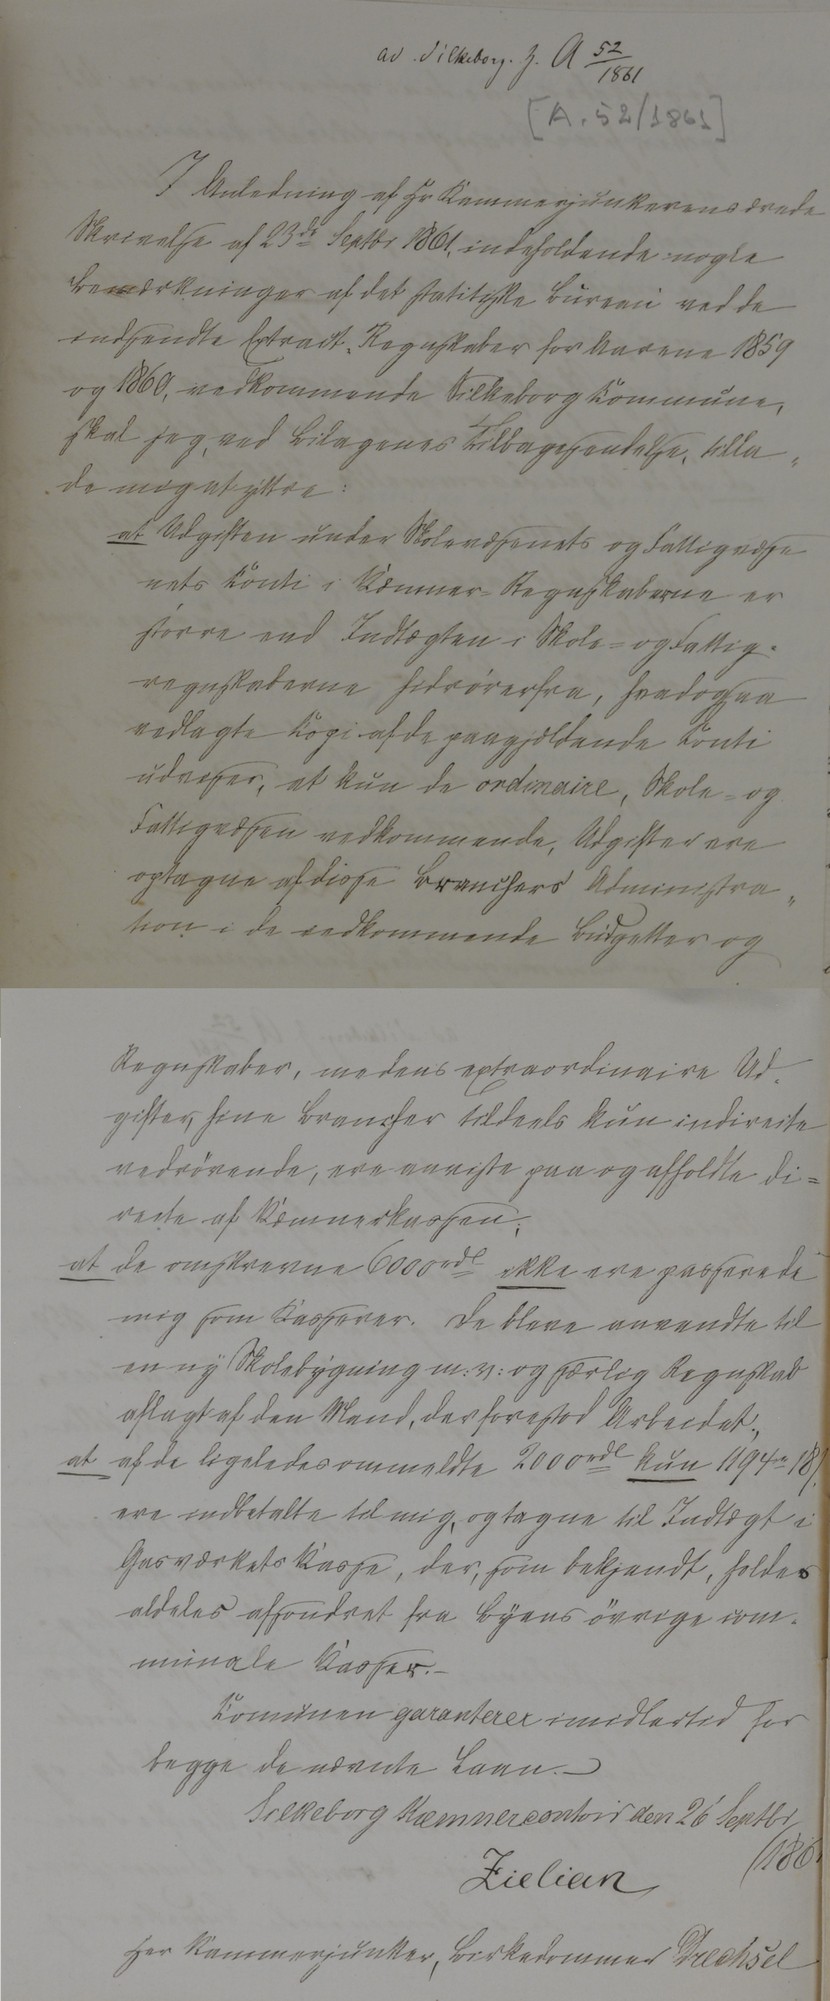 ad. Silkeborg. J. A 52/1861
[A. 52/1861]
I Anledning af Hr Kammerjunkerens ærede
Skrivelse af 23de Septbr 1861, indeholdende nogle
Bemærkninger af det statistiske Bureau ved de
indsendte Extract-Regnskaber for Aarene 1859
og 1860, vedkommende Silkeborg Kommune,
skal jeg, ved Bilagenes Tilbagesendelse, tilla„
de mig at yttre:
at Udgiften under Skolevæsenets og Fattigvæse
nets Conti i Kæmner-Regnskaberne er
större end Indtægten i Skole- og Fattig-
regnskaberne hidrörer fra, hvad ogsaa
vedlagte Copi af de paagjældende Conti
udviser, at kun de ordinaire, Skole- og
Fattigvæsen vedkommende, Udgifter ere
optagne af disse Branchers Administra„
tion i de vedkommende Budgetter og
Regnskaber, medens extraordinaire Ud-
gifter, hine Brancher tildeels kun indirecte
vedrörende, ere anviste paa og afholdte di=
recte af Kæmnerkassen;
at de omskrevne 6000 rdl ikke ere passerede
mig som Kasserer. De bleve anvendte til
en ny Skolebygning m: v: og særlig Regnskab
aflagt af den Mand, der forestod Arbeidet;
at af de ligeledes ommeldte 2000 rdl kun 1194 rd 18 /
ere indbetalte til mig, og tagne til Indtægt i
Gasværkets Kasse, der, som bekjendt, holdes
aldeles afsondret fra Byens övrige com-
munale Kasser.-
Comunen garanterer imidlertid for
begge de nævnte Laan.-
Silkeborg Kæmnercontoir den 26 Septbr
186
Zielian
Herr Kammerjunker, Birkedommer Drechsel